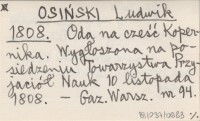 OSIŃSKI Ludwik
1808. Oda na cześć Koper-
nika. Wygłoszona na po-
siedzeniu Towarzystwa Przy-
jaciół Nauk 10 listopada
1808. – Gaz. Warsz. nr 94.